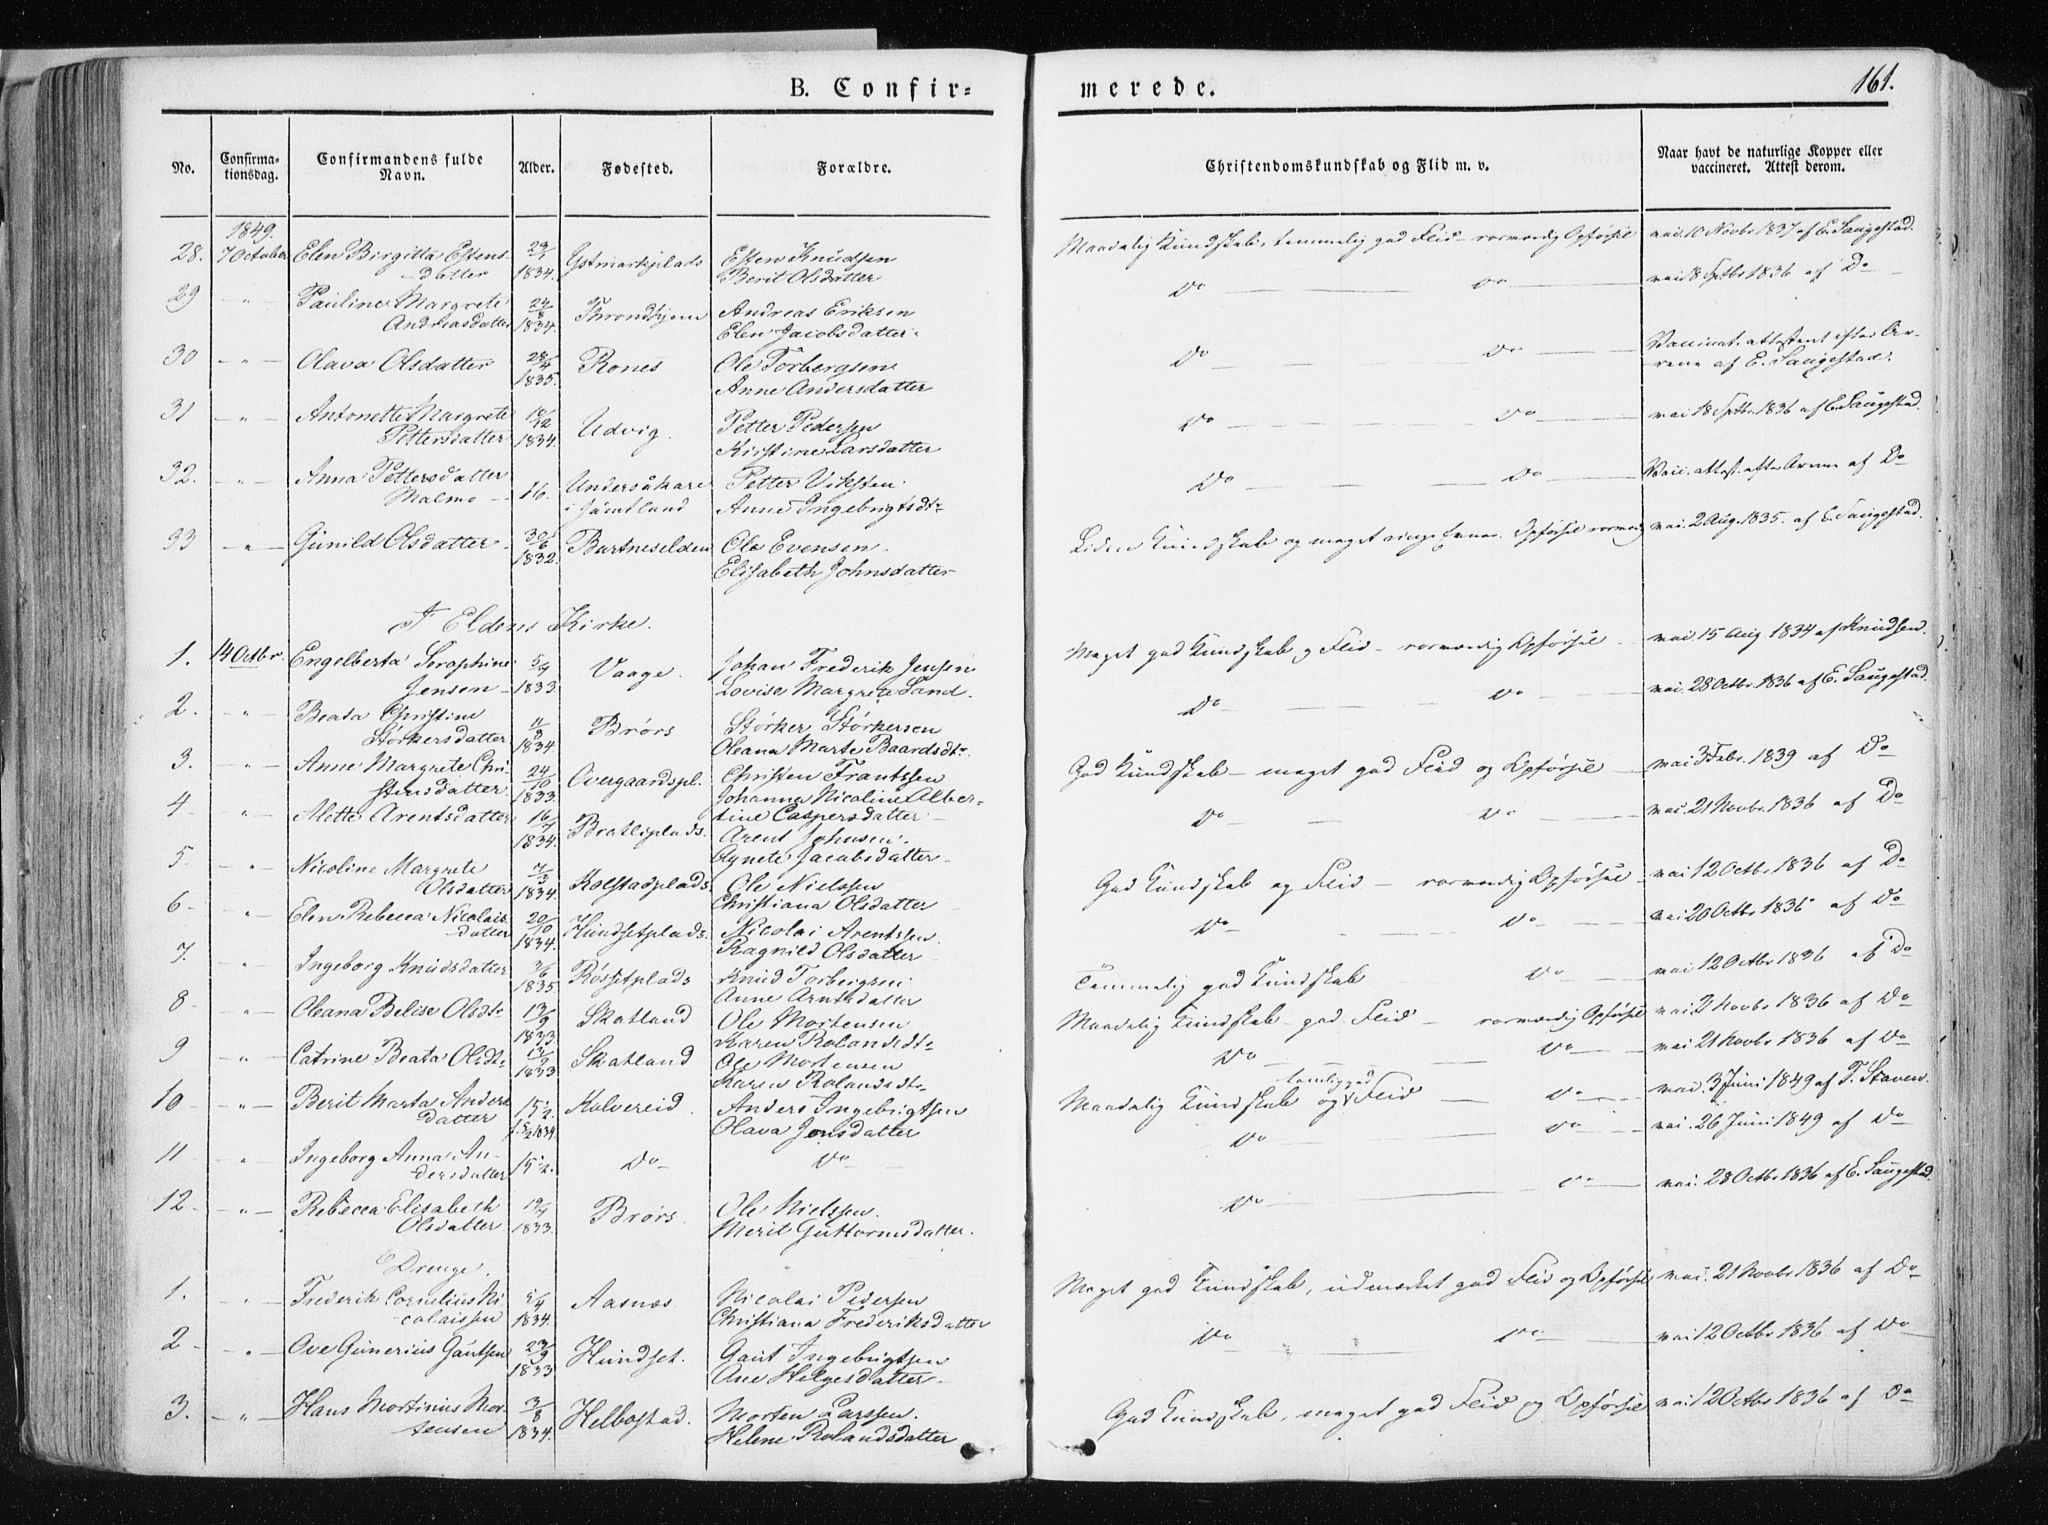 B. Confir=
merede.
161.
No.
Confirma-
tionsdag.
Confirmandens fulde
Navn.
Alder.
Fødested.
Forældre.
Christendomskundskab og Flid m. v.
Naar havt de naturlige Kopper eller
vaccineret. Attest derom.
1849.
28. 7 October Elen Birgitta Estens- 29/1 Ystmarkplads Esten Knudsen Maadelig Kundskab, temmelig god Flid - sømmelig Opførsel vac. 10 Novbr 1837 af E. Saugestad.
datter 1834. Berit Olsdatter
29 -"- Pauline Margrete 24/8 Throndhjem Andreas Eriksen Do Do vac 18 Septbr 1836 af Do
Andreasdatter 1834. Elen Jacobsdatter.
30 -"- Olava Olsdatter 28/4 Rones Ole Torbergsen Do Do Vaccinat. attesteret efter Ar-
1835. Anne Andersdatter rene af E. Saugestad.
31 -"- Antonette Margrete 10/12 Udvig. Petter Pedersen Do Do vac 18 Septbr. 1836 af E. Saugestad.
Pettersdatter 1834. Kirstine Larsdatter
32. -"- Anna Pettersdatter 16. Undersåkare Petter Viksten Do Do Vacc. attest. efter Arrene af Do
Malmo i Jämtland Anne Ingebrigtsdt.
33 -"- Gunild Olsdatter 30/6 Bartneselden Ole Evensen Liden Kundskab og meget ringe Evner. Opførsel vac. 2 Aug. 1835. af E. Saugestad.
1832. Elisabeth Johnsdatter
I Eldens Kirke.
1. 14 Octbr. Engelberta Seraphine 5/4 Vaage. Johan Frederik Jensen Meget god Kundskab og Flid - Opførsel vac 15 Aug 1834 af Knudsen.
Jensen 1833. Lovise Margrete Sand.
2. -"- Beata Christine 11/8 Brørs Størker Størkersen Do Do vac. 28 Octbr. 1836 af E. Saugestad.
Størkersdatter 1834 Oleana Marte Baardsdt.
3. -"- Anne Margrete Chri- 24/10 Overgaardspl. Christen Frantssen God Kundskab - meget god Flid og Opførsel vac 3 Febr. 1839 af Do
stensdatter 1833. Johanna Nicoline Alber-
4 -"- Mette Arentsdatter 16/7 Bratliplads. tine Caspersdatter Do Do vac. 21 Novbr. 1836 af Do
1834. Arent Johnsen.
5. -"- Nicoline Margrete 7/3 Kolstadplads Agnete Jacobsdatter God Kundskab og Flid - Opførsel vac 12 Octbr. 1836 af Do
Olsdatter 1834. Ole Nielssen
6 -"- Elen Rebecca Nicolais- 20/10 Hundsetplads. Christiana Olsdatter Do Do vac 20 Octbr 1836 af Do
datter 1834. Nicolai Arentssen.
7. -"- Ingeborg Knudsdatter 3/6 Røssetplads Ragnild Olsdatter Temmelig god Kundskab Do vac 12 Octbr 1836 af Do
1835. Knud Torbergsen
8 -"- Oleana Belise Olsdt. 13/9 Skatland Anne Arntsdatter Maadelig Kundskab - god Flid - Opførsel vac. 2 Novbr 1836 af Do
1833 Ole Mortensen
Karen Rolandsdt.
9 -"- Catrine Beata Olsdt. 13/9 Skatland Ole Mortensen Do Do vac. 21 Novbr 1836 af Do
1833 Karen Rolandsdt.
10 -"- Berit Marta Anders- 15 1/2. Kolvereid. Anders Ingebrigtsen Maadelig Kundskab og temlig god Flid Do vac. 3 Juni 1849 af T. Staven
datter f. 5/2 1834. Olava Jonsdatter
11 -"- Ingeborg Anna An- 15 1/2. Do Do Do Do vac. 26 Juni 1849 af Do
dersdatter
12 -"- Rebecca Elisabeth 19/4 Brørs Ole Nielssen. Do Do vac. 28 Octbr 1836 af E. Saugestad.
Olsdatter 1833. Merit Guttormsdatter.
Drenge.
1. -"- Frederik Cornelius Ni- 5/4 Aasnæs Nicolai Pedersen Meget god Kundskab, udmærket god Flid og Opførsel vac. 21 Novbr 1836 af Do
colaissen 1834. Christiana Frederiksdatter
2 -"- Ove Gunerius Gautsen 23/9 Hundset. Gaut Ingebrigtsen Do Do vac 12 Octbr 1836 af Do
1833 Ane Helgesdatter
3. -"- Hans Mortinius Mor- 3/8 Helbostad. Morten Larssen. God Kundskab, meget god Flid og Opførsel vac 12 Octbr 1836 af Do
tensen 1834. Helene Rolandsdatter